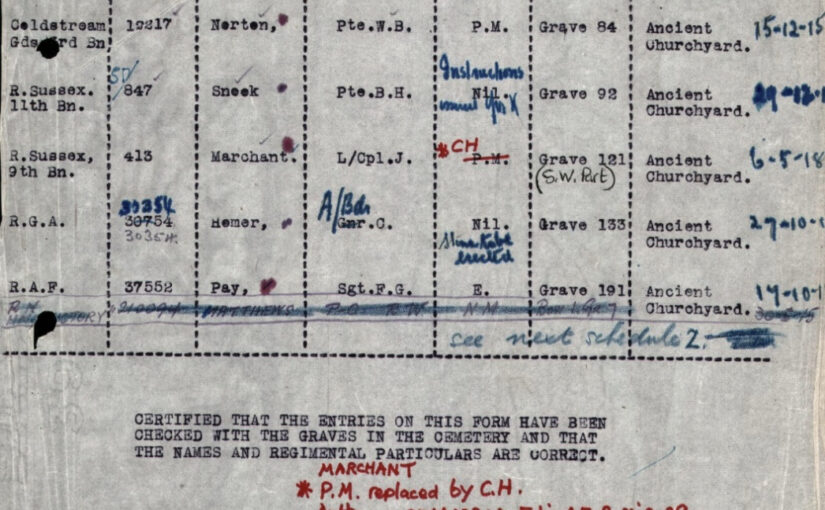 Coldstream 19217 Norton, Pte.W.B. P.M. Grave 84 Ancient 15-12-15
Gds 3rd Bn Churchyard.
Instructions
50/
R.Sussex. 847 Snook Pte.B.H. Nil. Grave 92 Ancient
11th Bn. Churchyard.
*CH
R.Sussex, 413 Marchant. L/Cpl.J. P.M. Grave 121 Ancient 6-5-18
9th Bn. (S.W. Part) Churchyard.
30354 A/Bdr
R.G.A. 30754 Homer, Gnr.C. Nil. Grave 133 Ancient 27-10-
30354. Churchyard.
erected
R.A.F. 37552 Pay, Sgt.F.G. E. Grave 191 Ancient 14-10-1
Churchyard.
R.N. 210094 MATTHEWS P.O. R W N M Row 1. Gr 7 30-5-15
see next schedule 2.
CERTIFIED THAT THE ENTRIES ON THIS FORM HAVE BEEN
CHECKED WITH THE GRAVES IN THE CEMETERY AND THAT
THE NAMES AND REGIMENTAL PARTICULARS ARE CORRECT.
MARCHANT
* P.M. replaced by C.H.